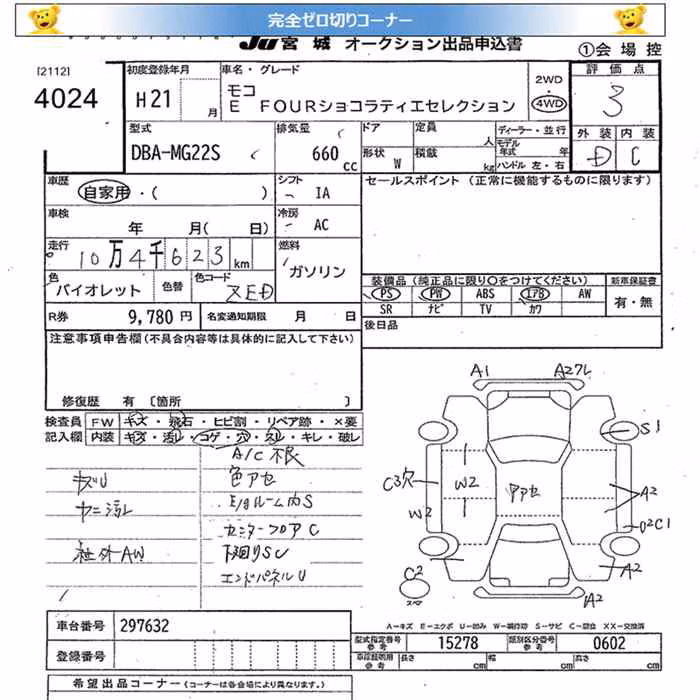 完全ゼロ切りコーナー
JU 宮城 オークション出品申込書
①会場控
[2112]
4024
初度登録年月
H21 月
車名・グレード
モコ
E FOURショコラティエセレクション
2WD
4WD
評価点
3
外装 内装
D C
型式
DBA-MG22S
排気量
660 cc
ドア
形状 W
定員 人
積載 kg
ディーラー・並行
モデル年式 年
ハンドル 左・右
車歴
自家用・( )
シフト
IA
セールスポイント (正常に機能するものに限ります)
車検
年 月( 日)
冷房
AC
走行
10万4千623 km
燃料
ガソリン
色
バイオレット
色替
色コード
ZED
装備品 (純正品に限り○をつけてください)
新車保証書
PS PW ABS エアB AW
SR ナビ TV カワ
有・無
R券 9,780 円
名変通知期限 月 日
後日品
注意事項申告欄 (不具合内容等は具体的に記入して下さい)
修復歴 有 〔箇所 〕
検査員記入欄
FW キズ・飛石・ヒビ割・リペア跡・×要
内装 キズ・汚レ・コゲ・穴・スレ・キレ・破レ
A/C不良
キズU 色アセ
ヤニ汚レ E/gルーム内S
センターフロアC
社外AW 下廻りSC
エンドパネルU
A1
A2フレ
S1
C3穴
W2
W2
アアセ
A2
U2C1
A2
C2
スペア
A2
A-キズ E-エクボ U-凹み W-補修跡 S-サビ C-腐食 XX-交換済
車台番号 297632
登録番号
型式指定番号 参考 15278
類別区分番号 参考 0602
車庫証明用 参考
長さ cm
幅 cm
高さ cm
希望出品コーナー (コーナーは各会場により異なります。)